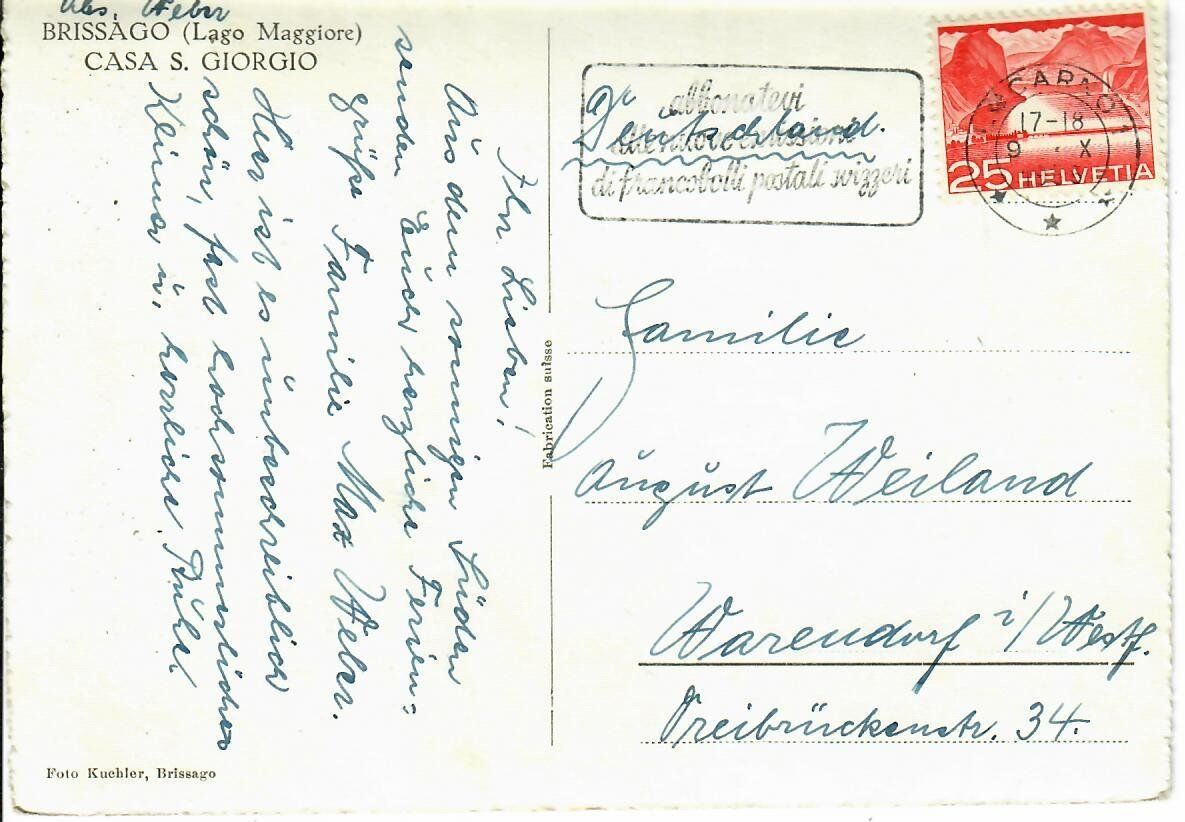 Abs. Weber
BRISSAGO (Lago Maggiore)
CASA S. GIORGIO
Ihr Lieben!
Aus dem sonnigen Süden
senden Euch herzliche Ferien=
grüße Familie Max Weber.
Hier ist es unbeschreiblich
schön, fast hochsommerliches
Klima u. herrliche Ruhe.
Foto Kuchler, Brissago
Fabrication suisse
abbonatevi
alle nuove emissioni
di francobolli postali svizzeri
Deutschland.
LOCARNO 1
17-18
9 X
25 HELVETIA
Familie
August Weiland
Warendorf i/Westf.
Dreibrückenstr. 34.